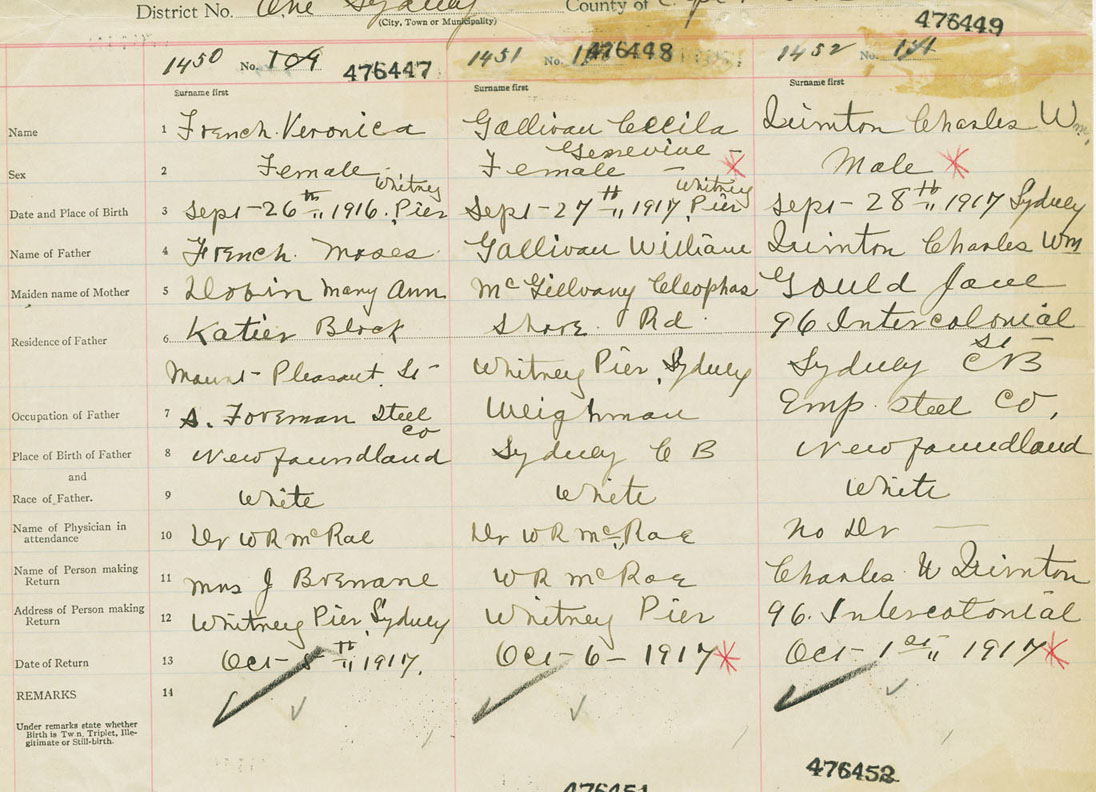 District No. One Sydney County of
(City, Town or Municipality)
476449
1450 No. 109 476447 1451 No. 476448 1452 No.
Surname first Surname first Surname first
Name 1 French. Veronica Gallivan Cecila Quinton Charles Wm.
Genevive -
Sex 2 Female Female Male
Whitney Whitney
Date and Place of Birth 3 Sept - 26th " 1916. Pier Sept - 27th " 1917, Pier Sept - 28th " 1917 Sydney
Name of Father 4 French. Moses. Gallivan William Quinton Charles Wm
Maiden name of Mother 5 Dobin Mary Ann McGillvany Cleophas Gould Jane
Residence of Father 6 Katier Block Shore Rd 96 Intercolonial
St
Mount Pleasant. St - Whitney Pier, Sydney Sydney CB
Occupation of Father 7 S. Foreman Steel Weighman Emp. Steel Co,
Co
Place of Birth of Father 8 Newfoundland Sydney C B Newfoundland
and
Race of Father. 9 White White White
Name of Physician in attendance 10 Dr W R McRae Dr W R McRae No Dr —
Name of Person making Return 11 Mrs J Brenane W R McRae Charles W Quinton
Address of Person making Return 12 Whitney Pier, Sydney Whitney Pier 96. Intercolonial
Date of Return 13 Oct - th " 1917. Oct - 6 - 1917 Oct - 1st " 1917
REMARKS 14
Under remarks state whether
Birth is Twin, Triplet, Ille-
gitimate or Still-birth.
476452
476451